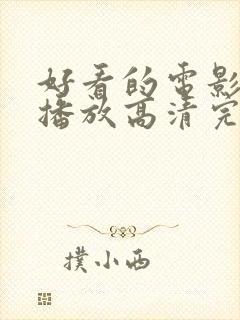 好看的电影
播放高清完
撲小西